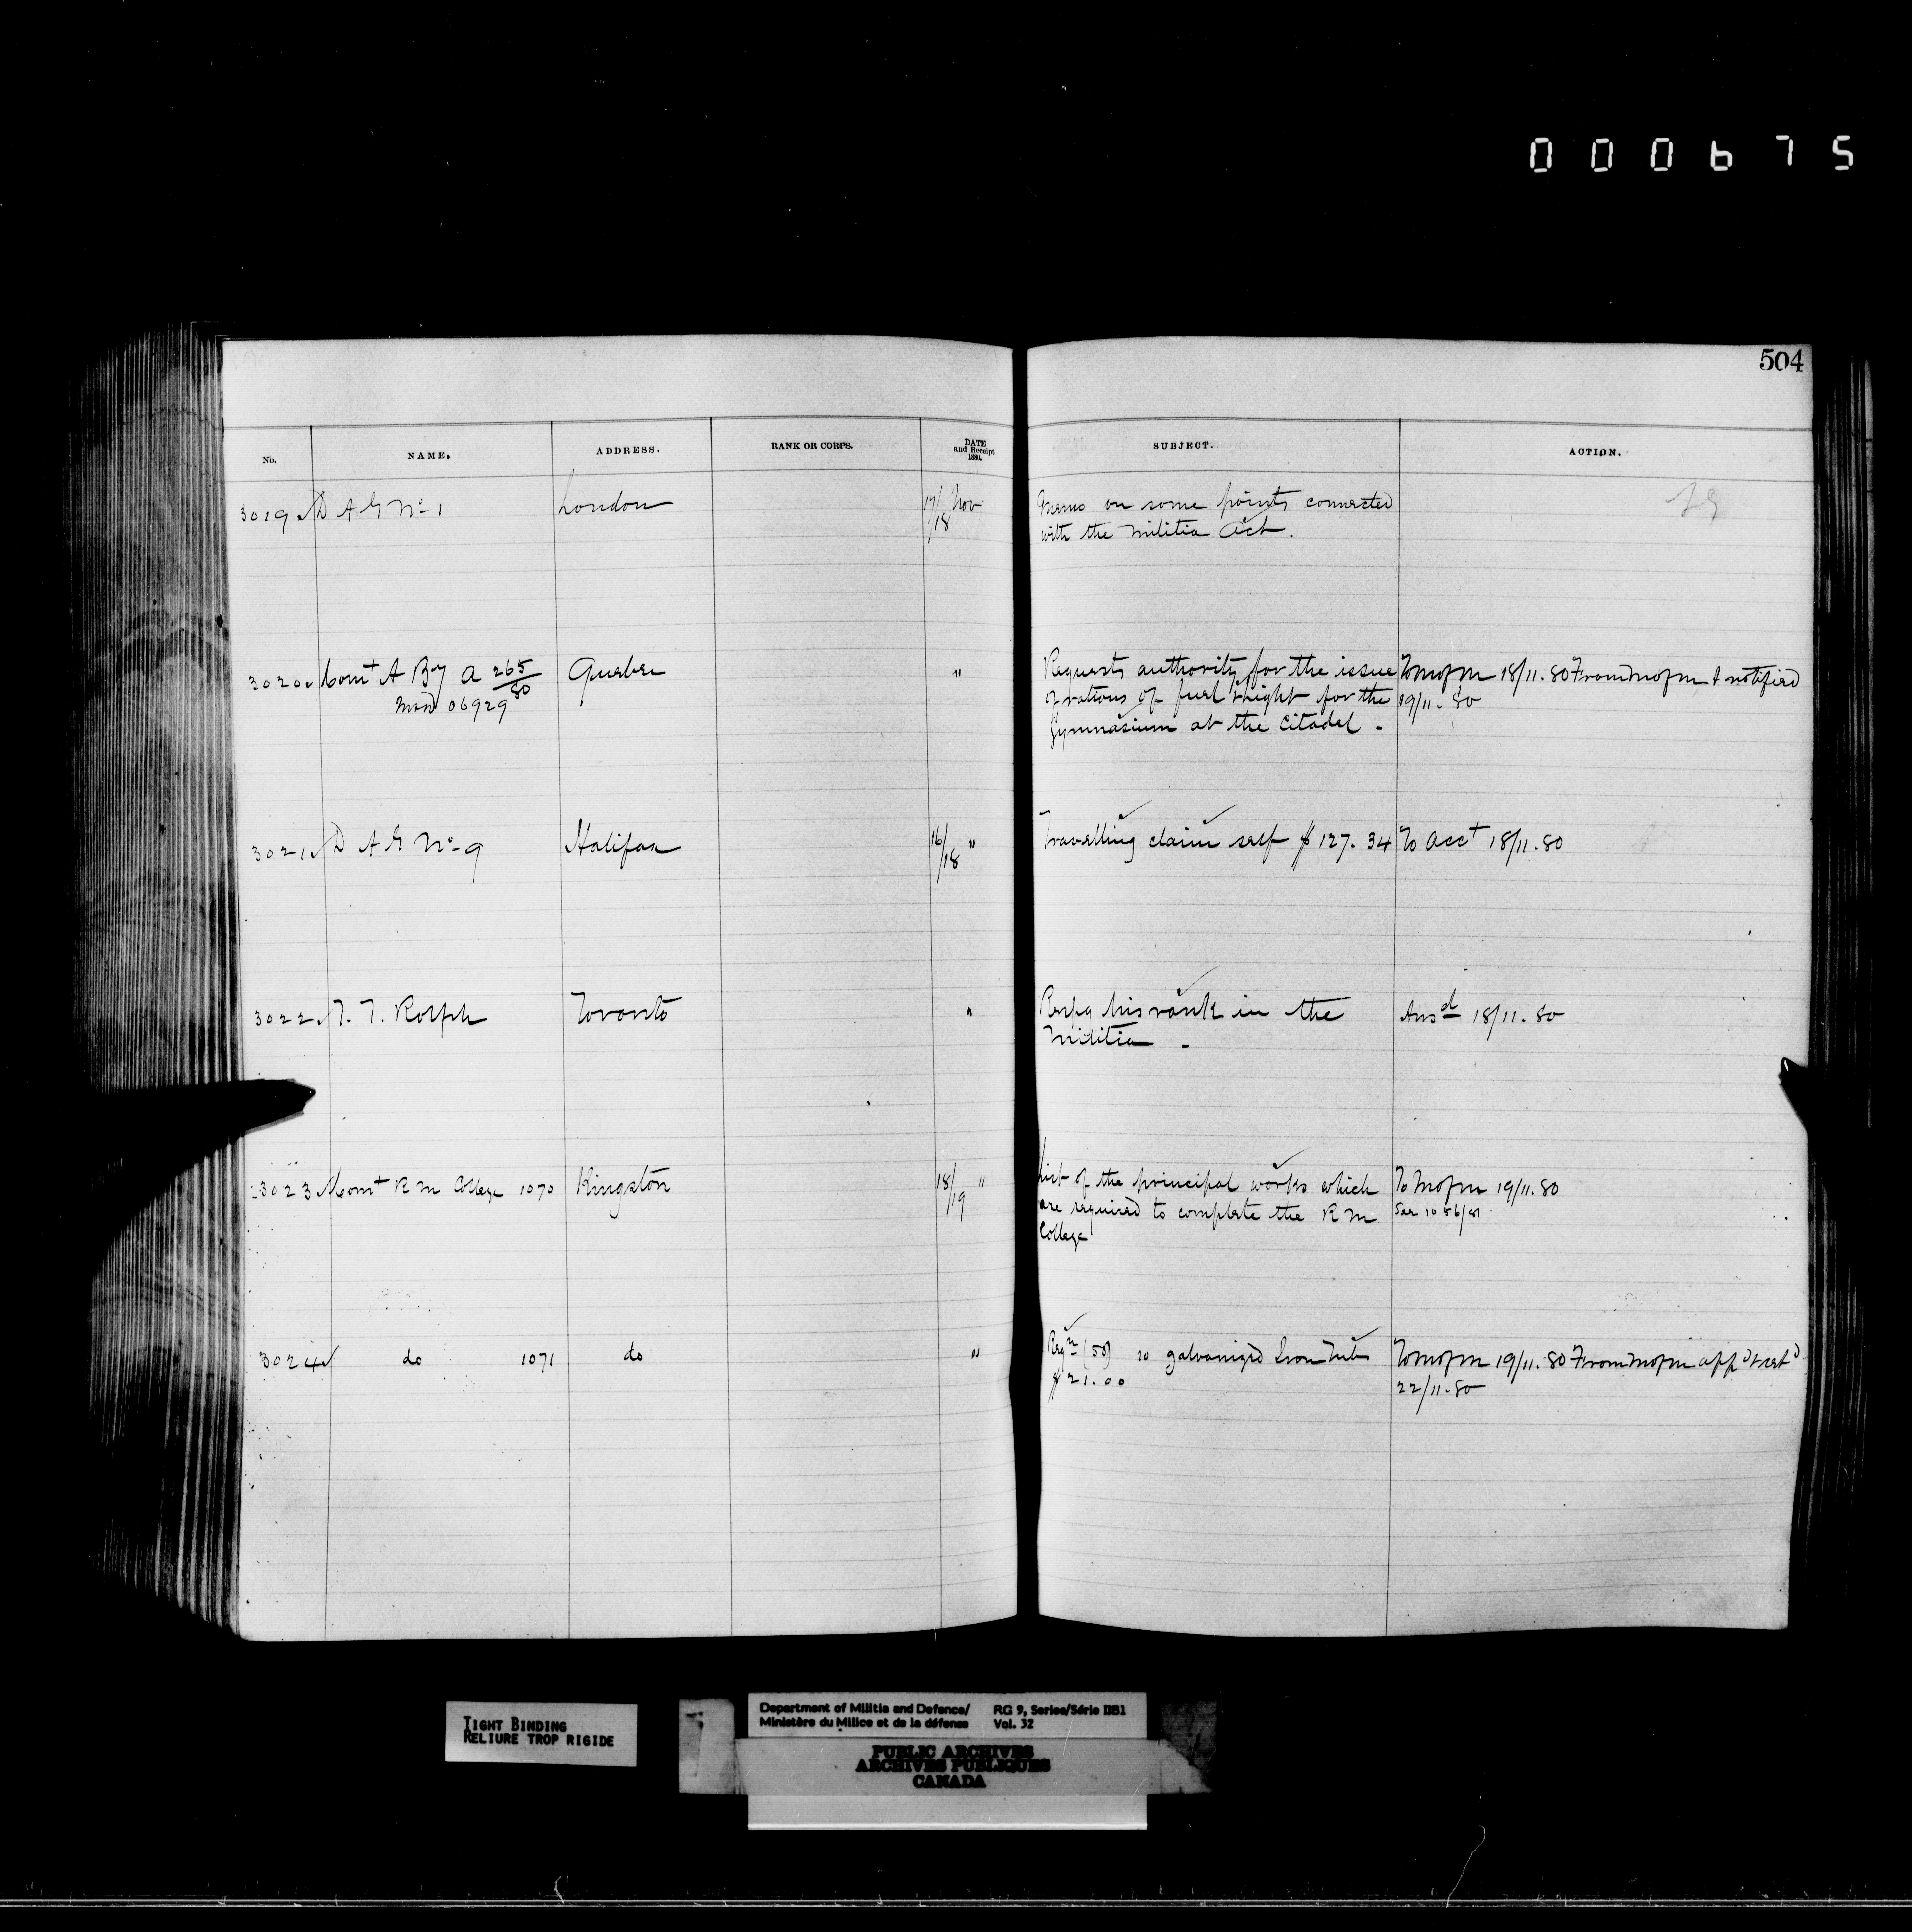 000675
504
No. NAME. ADDRESS. RANK OR CORPS. DATE and Receipt 1880. SUBJECT. ACTION.
3019 D A G No 1 London 17/18 Nov Memo on some points connected
with the Militia Act.
3020 Comt A By A 265/80 Quebec " Requests authority for the issue To M of M 18/11.80 From M of M & notified
06929 of rations of fuel & light for the 19/11.80
Gymnasium at the Citadel -
3021 D A G No 9 Halifax 16/18 " Travelling claim self $127.34 To Acct 18/11.80
3022 Rolph Toronto " his rank in the Ansd 18/11.80
Militia -
3023 Comt R M College 1070 Kingston 18/19 " List of the principal works which To M of M 19/11.80
are required to complete the R M See 1056/81
College
3024 do 1071 do " Reqn (50) 10 galvanized Iron Tubs To M of M 19/11.80 From M of M appd & retd
$21.00 22/11.80
TIGHT BINDING
RELIURE TROP RIGIDE
Department of Militia and Defence/ RG 9, Series/Série IIB1
Ministère du Milice et de la défense Vol. 32
PUBLIC ARCHIVES
ARCHIVES PUBLIQUES
CANADA